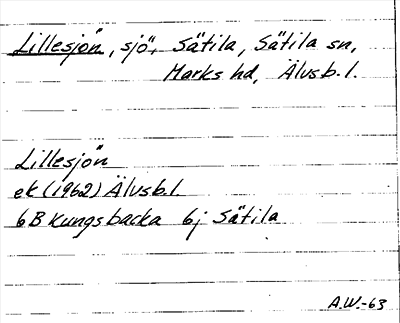 Lillesjön, sjö, Sätila, Sätila sn,
Marks hd, Älvsb. l.
Lillesjön
ek (1962) Älvsb. l.
6B Kungsbacka 6j Sätila
A.W.-63